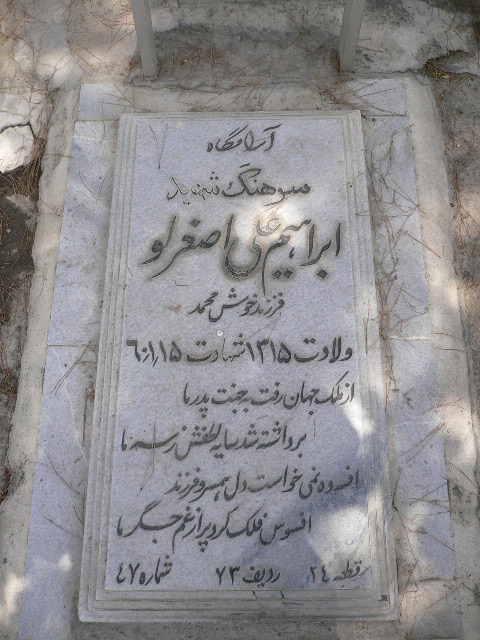 آرامگاه
سرهنگ شهید
ابراهیم علی اصغرلو
فرزند خوش محمد
ولادت ۱۳۱۵ شهادت ۶۰/۱/۱۵
از ملک جهان رفت به جنت پدر ما
برداشته شد سایه لطفش ز سر ما
افسرده نمی خواست دل همسر و فرزند
افسوس فلک کرد پر از غم جگر ما
قطعه ۲۴ ردیف ۷۳ شماره ۴۷